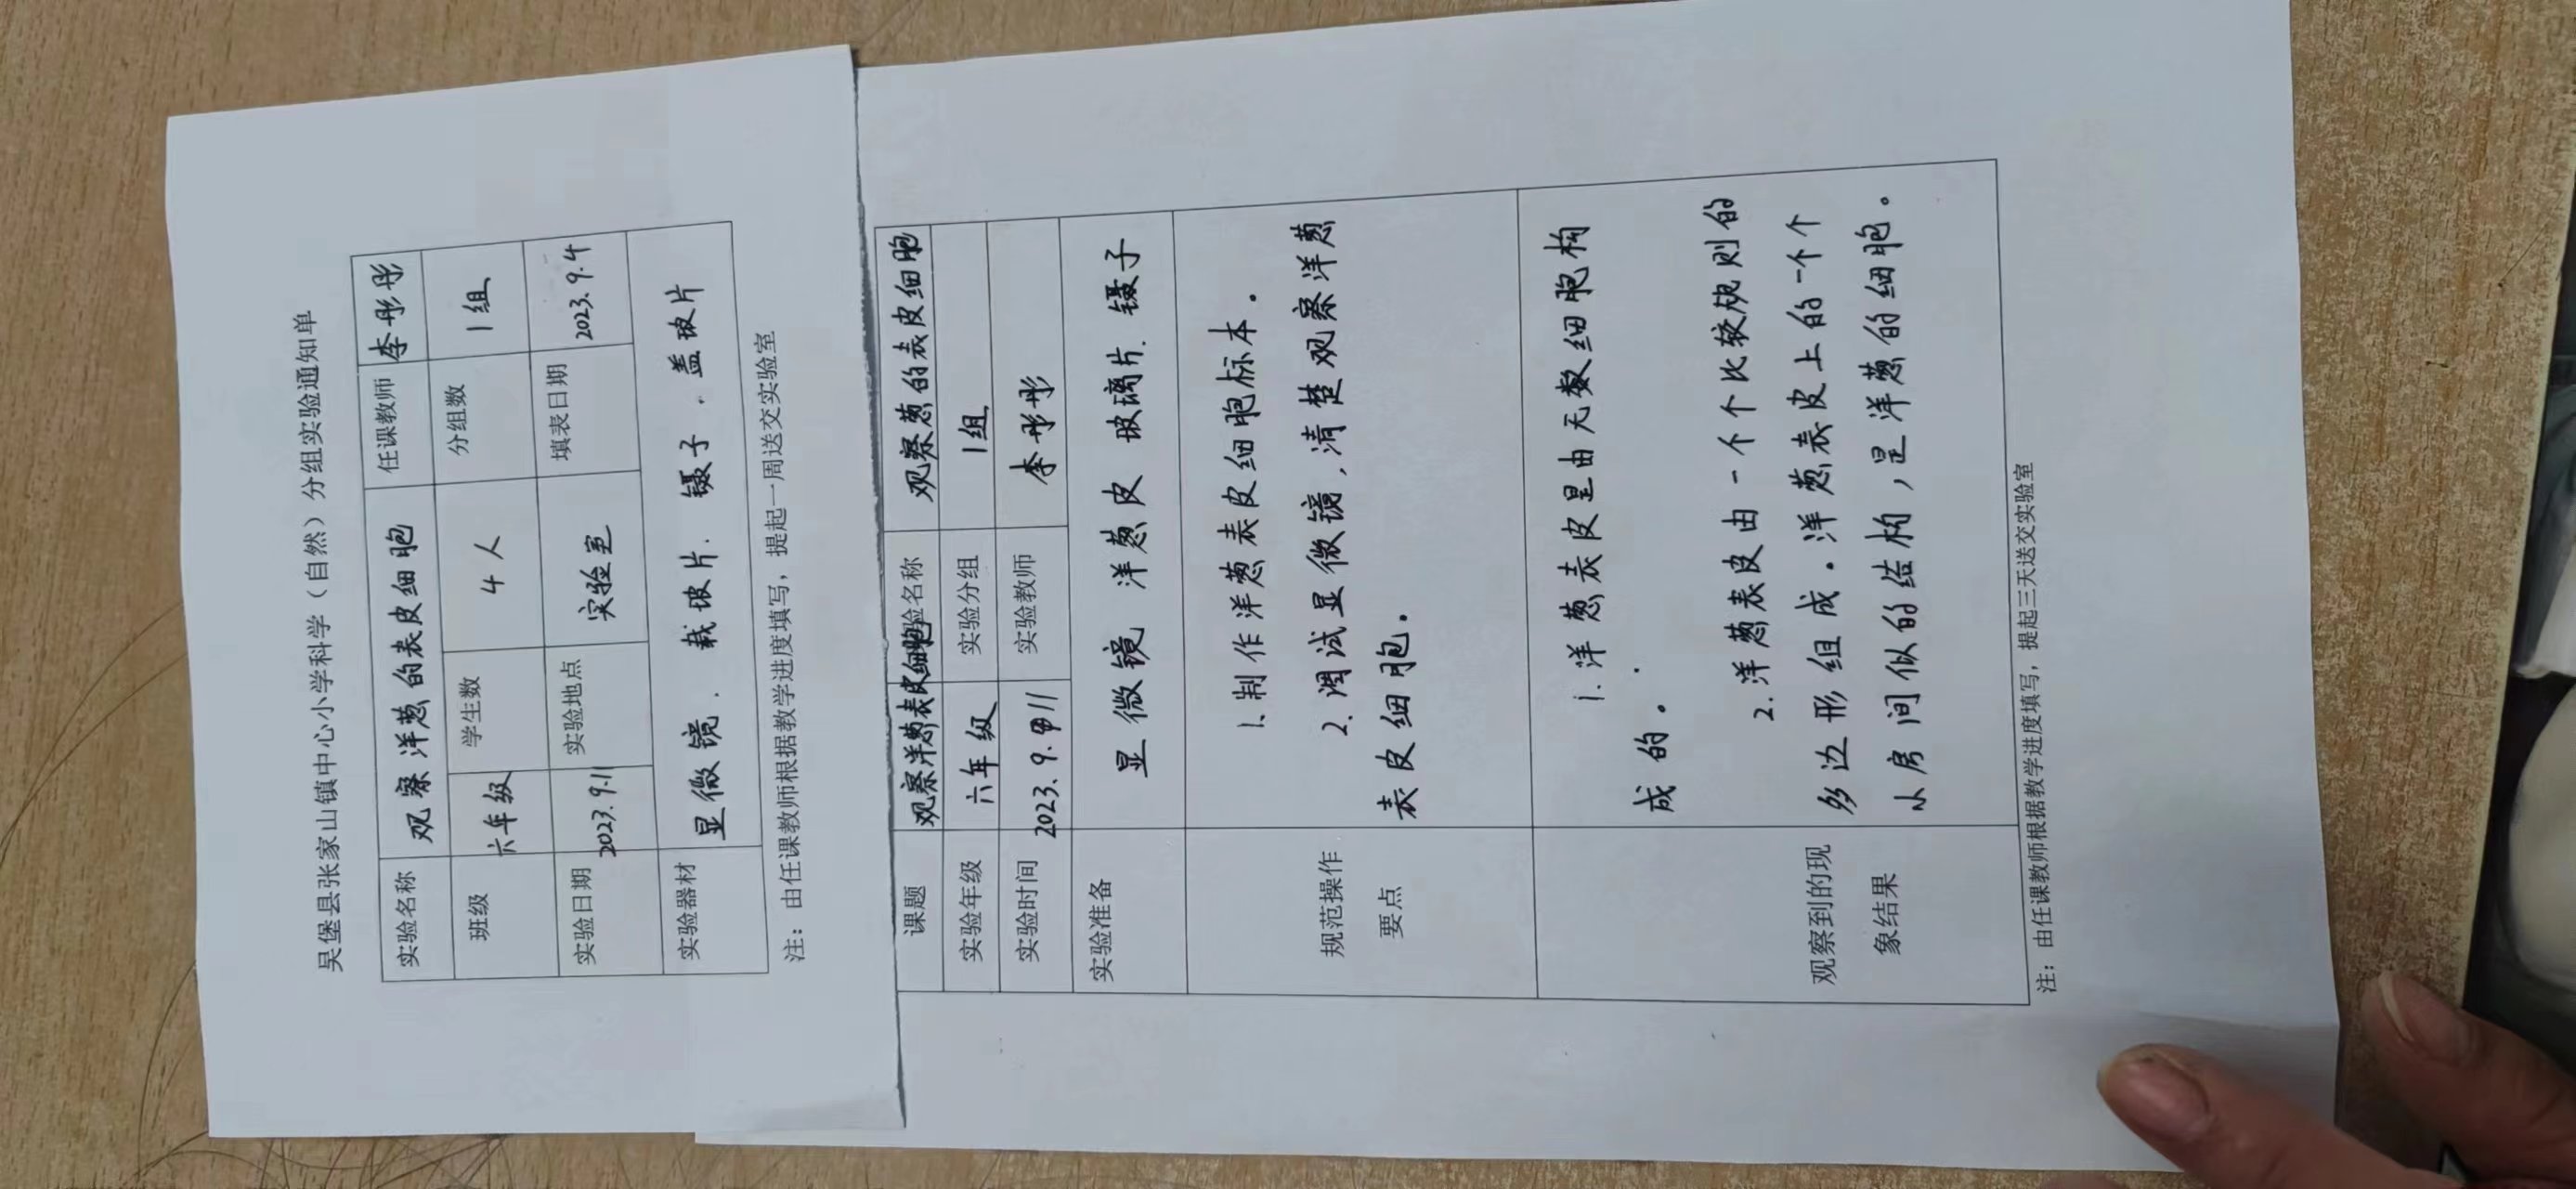 吴堡县张家山镇中心小学科学（自然）分组实验通知单
实验名称 观察洋葱的表皮细胞 任课教师 李彤彤
班级 六年级 学生数 4人 分组数 1组
实验日期 2023.9.11 实验地点 实验室 填表日期 2023.9.4
实验器材 显微镜．载玻片．镊子．盖玻片
注：由任课教师根据教学进度填写，提起一周送交实验室
课题 观察洋葱表皮细胞 实验名称 观察葱的表皮细胞
实验年级 六年级 实验分组 1组
实验时间 2023.9.11 实验教师 李彤彤
实验准备 显微镜 洋葱皮 玻璃片．镊子
规范操作
要点
1.制作洋葱表皮细胞标本．
2.调试显微镜，清楚观察洋葱
表皮细胞．
观察到的现
象结果
1.洋葱表皮是由无数细胞构
成的．
2.洋葱表皮由一个个比较规则的
多边形组成．洋葱表皮上的一个个
小房间似的结构，是洋葱的细胞。
注：由任课教师根据教学进度填写，提起三天送交实验室